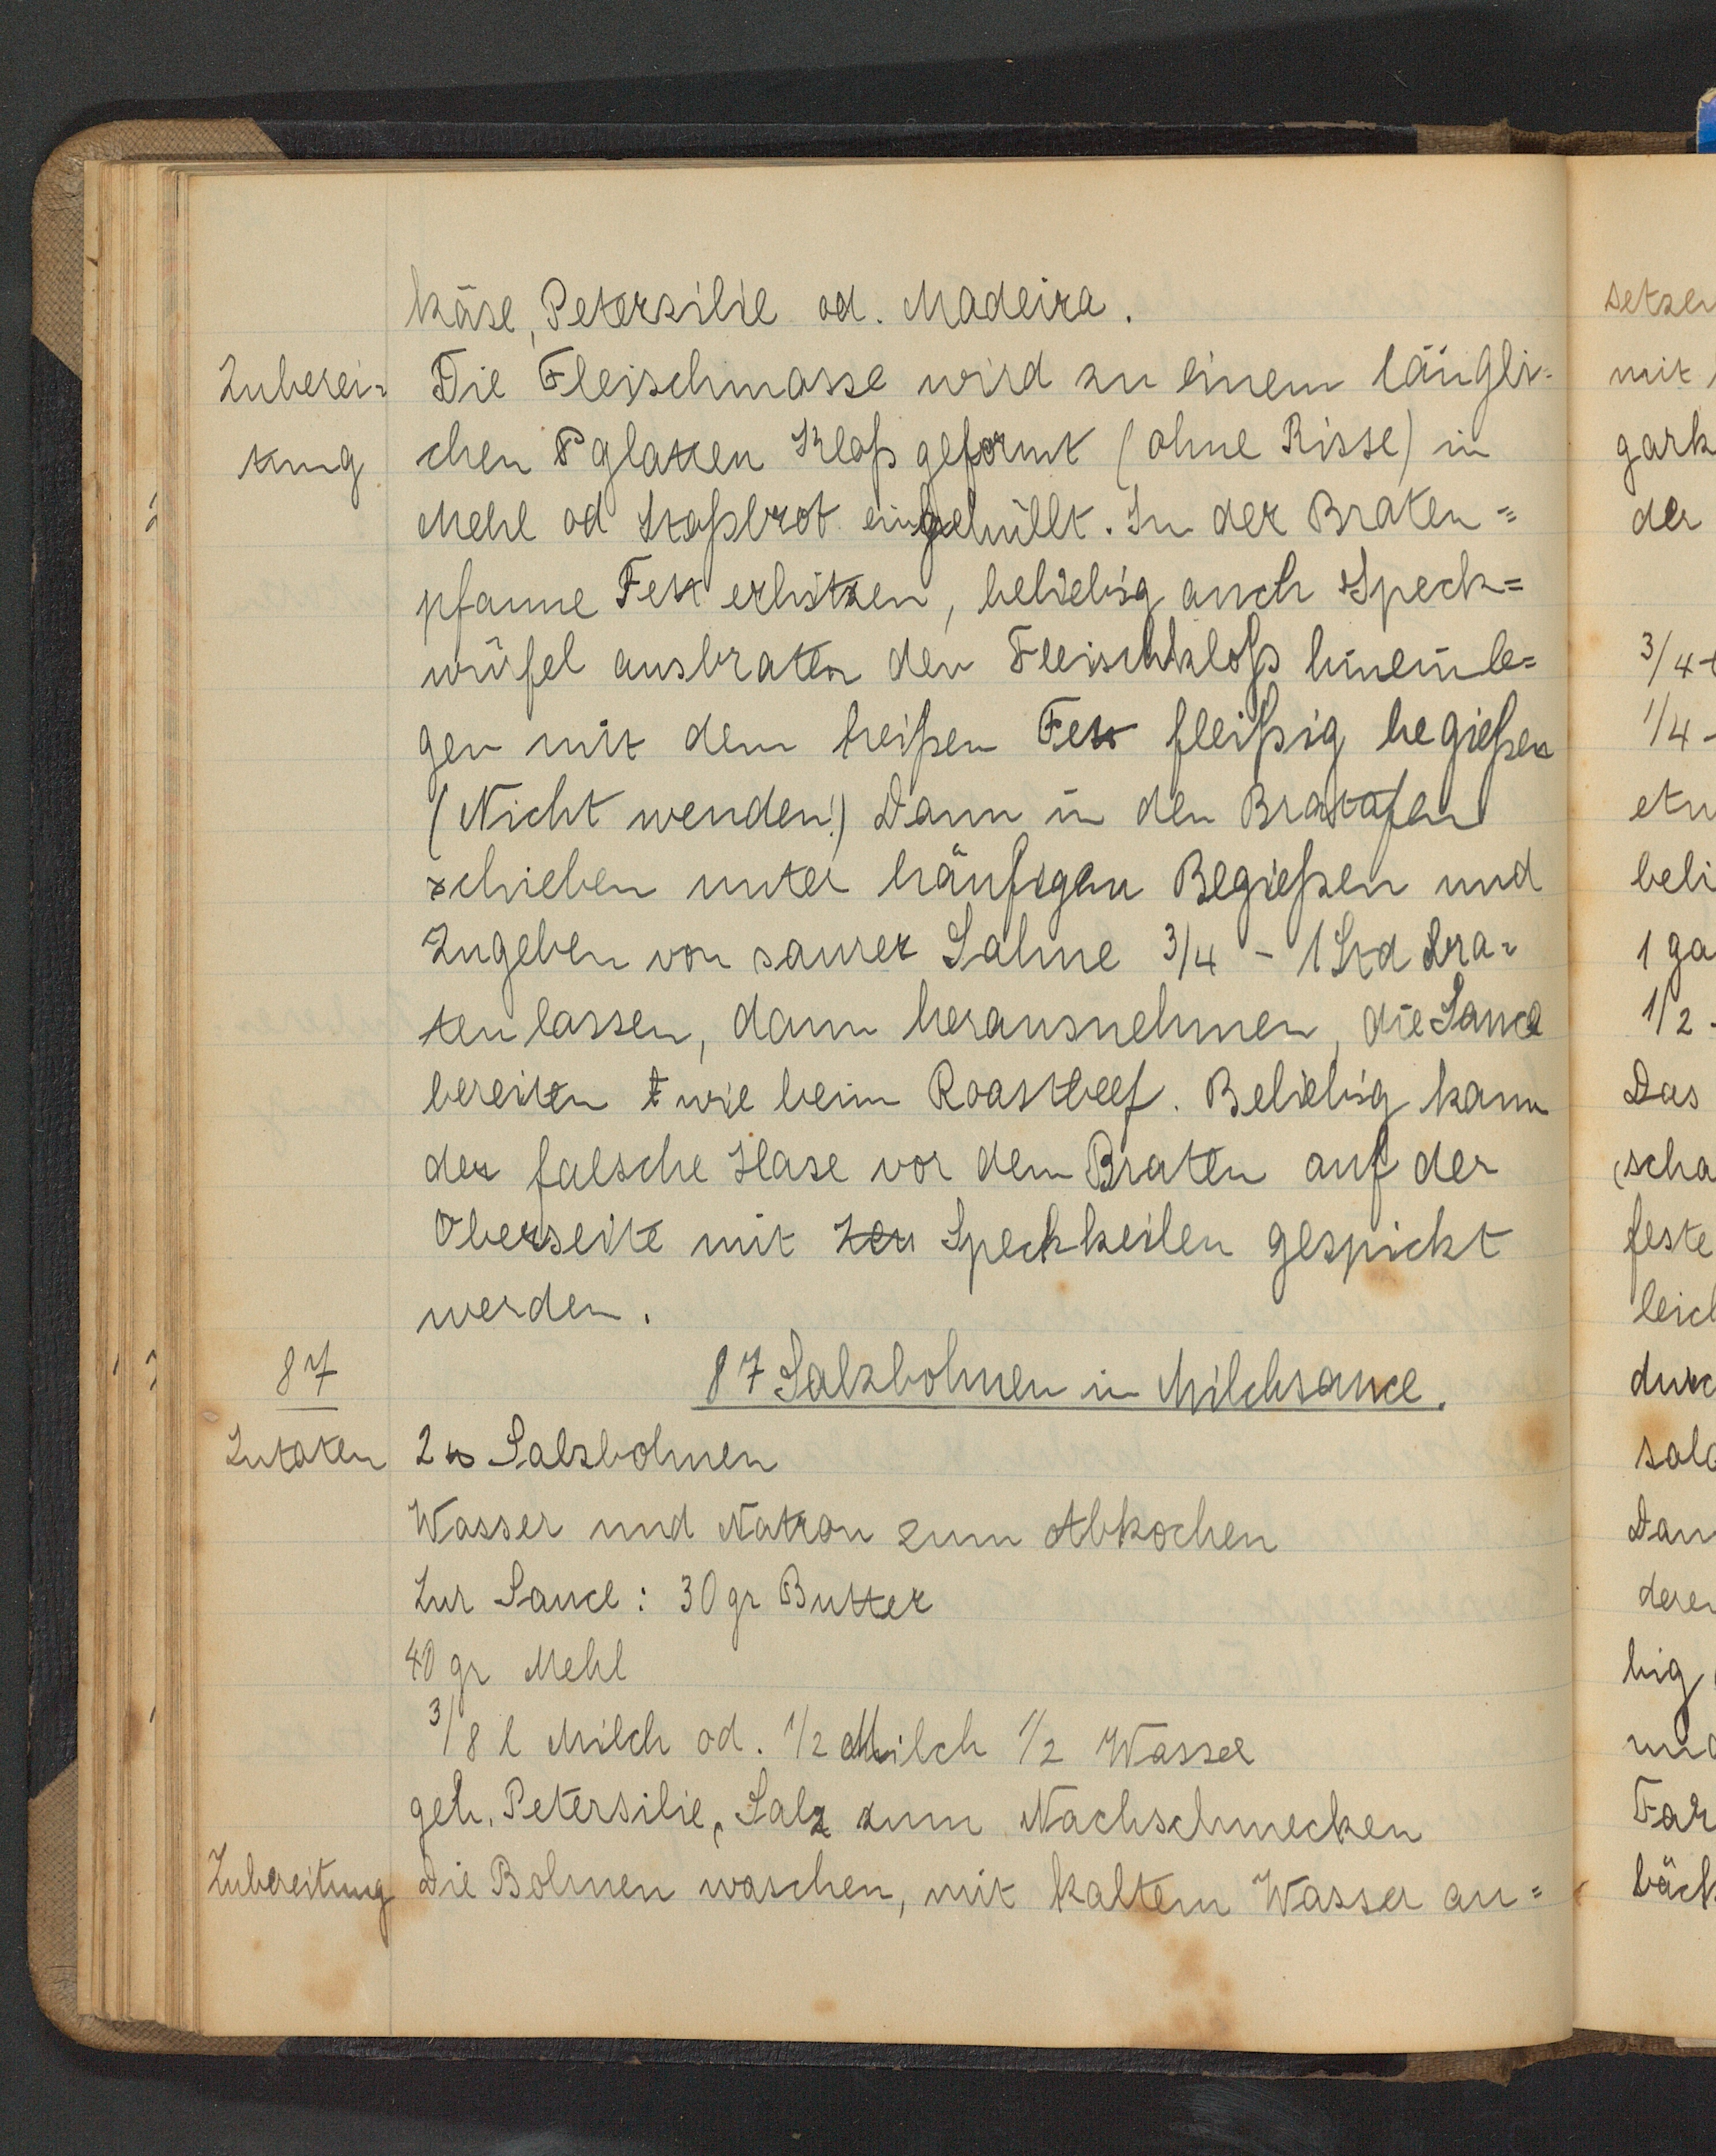 käse, Petersilie od. Madeira.
Zuberei= Die Fleischmasse wird zu einem längli-
tung chen glatten Kloß geformt (ohne Risse) in
Mehl od Stoßbrot eingehüllt. In der Braten=
pfanne Fett erhitzen, beliebig auch Speck=
würfel ausbraten den Fleischkloß hineinle=
gen mit dem heißen Fett fleißig begießen
(Nicht wenden!) Dann in den Bratofen
schieben unter häufigen Begießen und
Zugeben von saurer Sahne 3/4 - 1 Std bra=
ten lassen, dann herausnehmen, die Sauce
bereiten wie beim Roastbeef. Beliebig kann
der falsche Hase vor dem Braten auf der
Oberseite mit Speckkeilen gespickt
werden.
87 87 Salzbohnen in Milchsauce.
Zutaten 2 ℔ Salzbohnen
Wasser und Natron zum Abkochen
Zur Sauce: 30 gr Butter
40 gr Mehl
3/8 l Milch od. 1/2 Milch 1/2 Wasser
geh. Petersilie, Salz zum Nachschmecken
Zubereitung Die Bohnen waschen, mit kaltem Wasser an=
setzen
mit
gark
der
3/4
1/4
etw
beli
1 ga
1/2
Das
scha
feste
leich
durc
sala
Dan
deren
big
und
Far
bäck